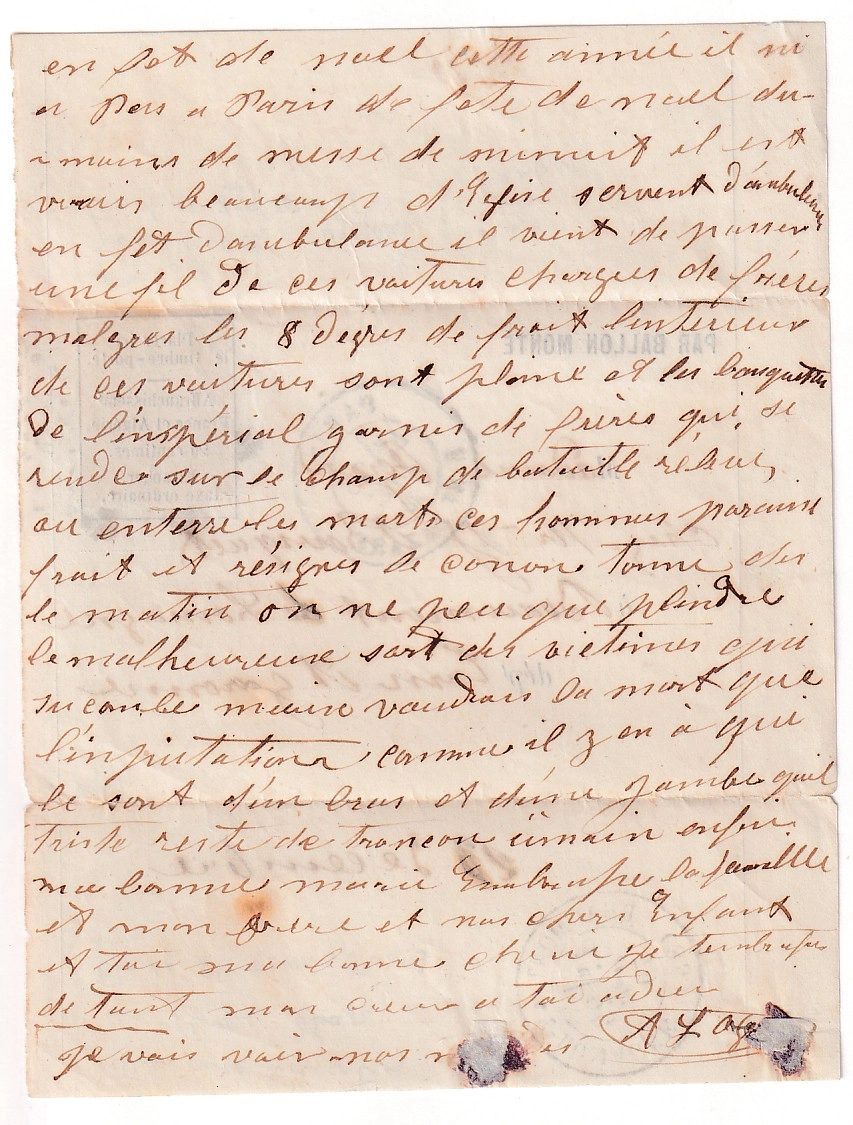 en fet de noel cette année il ni
a pas a Paris de fete de noel du-
-moins de messe de minuit il est
vrais beaucoups d'Eglise servent d'ambulance
en fêt d'ambulance il vient de passer
une fil de ces voitures chargees de fréres
malgres les 8 degres de froit linterieur
de ces voitures sont plaine et les banquettes
de l'inspérial garnis de frères qui se
rende sur le champ de bataille
ou enterre les morts ces hommes paraisse
froit et résignes le canon tonne des
le matin on ne peu que plindre
le malheureuse sort des victimes qui
sucombe mieux vaudrais la mort que
l'inputation comme il y en à qui
le sont d'un bras et d'une jambe quil
triste reste de troncon umain enfin
ma bonne marie Embrasse la famille
et mon frere et nos chers Enfant
et toi ma bonne cherie je tembrasse
de tout mon coeur a toi adieu
je vais voir nos
PAR BALLON MONTÉ